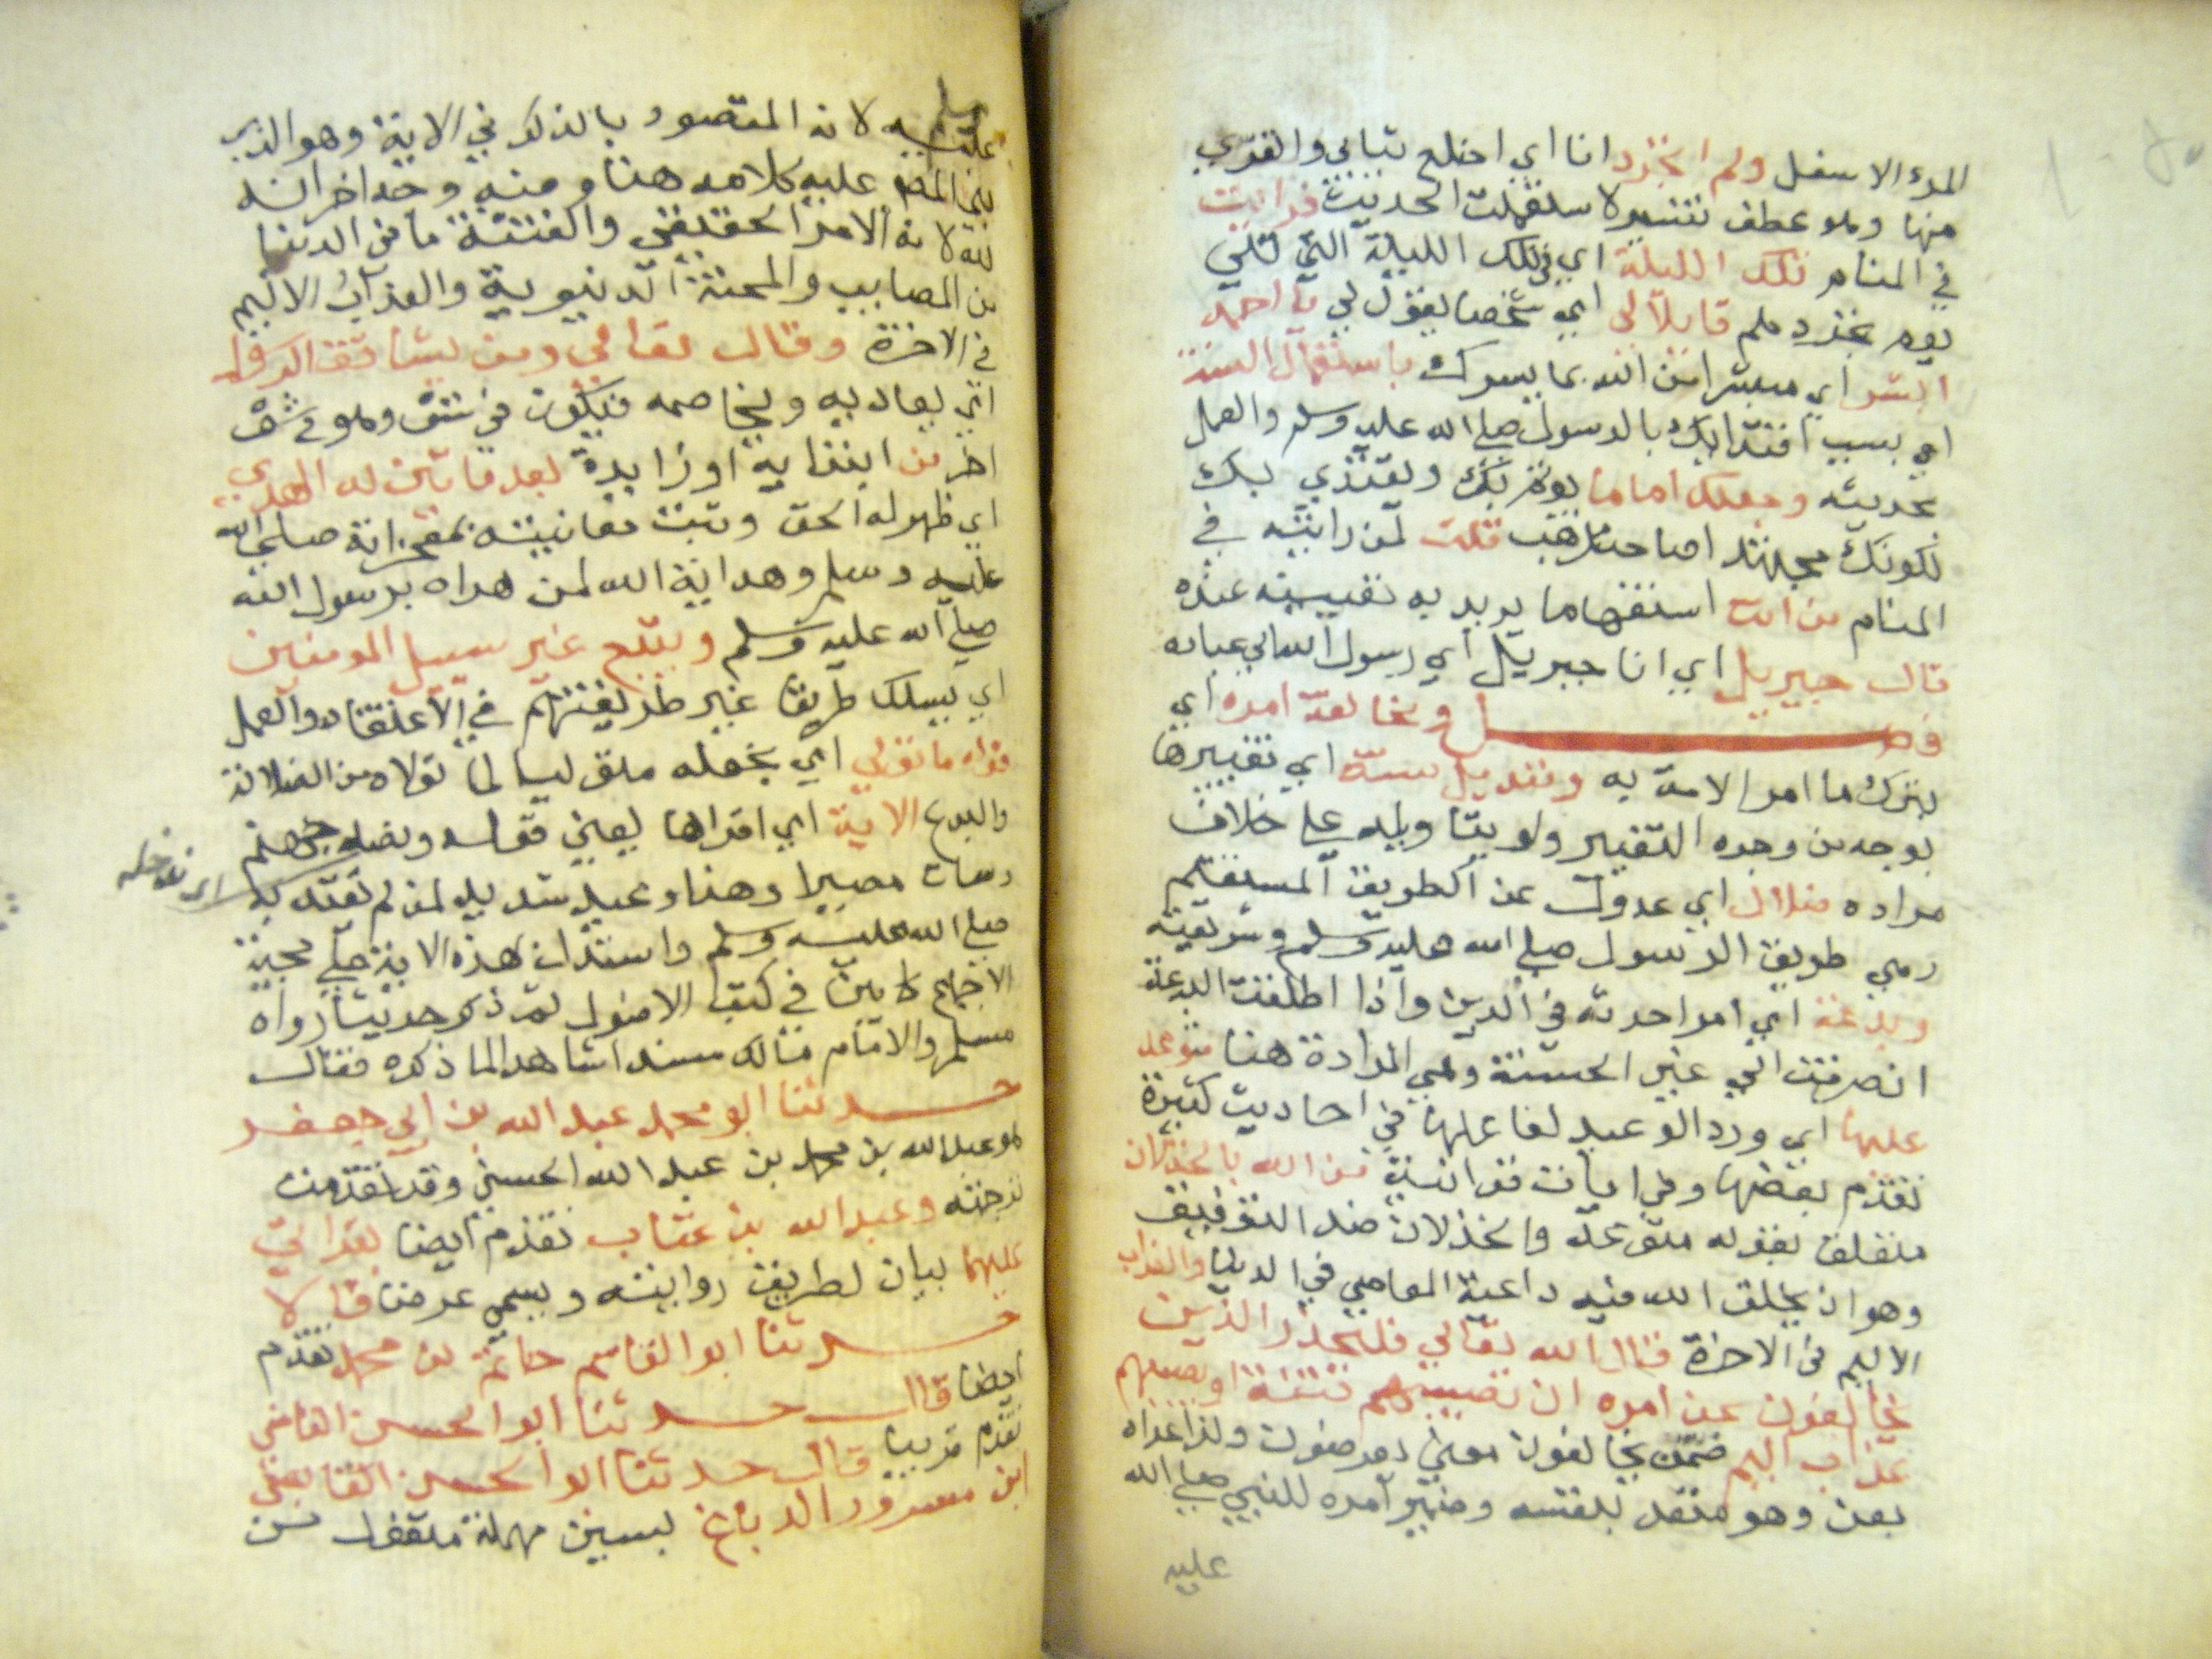 المرء الاسفل ولم اتجرد انا اي اخلع ثيابي والتعري
منها وهو عطف تفسير لاستعملت الحديث فرايت
في المنام تلك الليلة اي في تلك الليلة التي تلي
يوم تجردهم قايلا لي اي شخصا يقول لي يا احمد
ابشر اي مبشرا من الله بما يسرك باستعمال السنة
اي بسبب اقتدايك بالرسول صلى الله عليه وسلم والعمل
بحديثه وجعلك اماما يؤتم بك ويقتدي بك
لكونك مجتهدا صاحب مذهب قلت لمن رايته في
المنام من انت استفهاما يريد به تعيينه عنده
قال جبريل اي انا جبريل اي رسول الله الي عباده
فصل ومخالفة امره اي
بترك ما امر الامة به وتبديل سنته اي تغييرها
بوجه من وجوه التغيير ولو بتاويله على خلاف
مراده ضلال اي عدول عن الطريق المستقيم
وهي طريق الرسول صلى الله عليه وسلم وشريعته
وبدعة اي امر احدثه في الدين واذا اطلقت البدعة
انصرفت الي غير الحسنة وهي المرادة هنا متوعد
عليها اي ورد الوعيد لفاعلها في احاديث كثيرة
تقدم بعضها وفي ايات قرانية من الله بالخذلان
متعلق بقوله متوعد والخذلان ضد التوفيق
وهو ان يخلق الله فيه داعية المعاصي في الدنيا والعذاب
الاليم في الاخرة قال الله تعالي فليحذر الذين
يخالفون عن امره ان تصيبهم فتنة او يصيبهم
عذاب اليم ضمن يخالفون معني يعرضون ولذا عداه
بعن وهو متعد بنفسه وضمير امره للنبي صلى الله
عليه
عليه وسلم لانه المقصود بالذكر في الاية وهو الذي
بني المص عليه كلامه هنا ومنه وجه اخر انه
لله لانه الامر الحقيقي والفتنة ما في الدنيا
من المصايب والمحنة الدنيوية والعذاب الاليم
في الاخرة وقال تعالي ومن يشاقق الرسول
اي يعاديه ويخاصمه فيكون في شق وهو في شق
اخر من ابتدايية او زايدة بعد ما تبين له الهدي
اي ظهر له الحق وثبت حقانيته بمعجزاته صلى الله
عليه وسلم وهداية الله لمن هداه برسول الله
صلى الله عليه وسلم ويتبع غير سبيل المومنين
اي يسلك طريقا غير طريقتهم في الاعتقاد والعمل
نوله ما تولي اي نجعله متوليا لما تولاه من الضلالة
والبدع الاية اي اقراها يعني قوله ونصله جهنم
اي ندخله
وساءت مصيرا وهذا وعيد شديد لمن لم يقتد به
صلى الله عليه وسلم واستدل بهذه الاية على حجية
الاجماع كما بين في كتب الاصول ثم ذكر حديثا رواه
مسلم والامام مالك مسندا شاهدا لما ذكره فقال
حدثنا ابو محمد عبد الله بن ابي جعفر
هو عبد الله بن محمد بن عبد الله الحسني وقد تقدمت
ترجمته وعبد الله بن عتاب تقدم ايضا بقراتي
عليهما بيان لطريق روايته ويسمي عرضا قالا
حدثنا ابو القاسم حاتم بن محمد تقدم
ايضا قال حدثنا ابو الحسن القابسي
تقدم قريبا قال حدثنا ابو الحسن القابسي
ابن مسرور الدباغ بسين مهملة مفعول من